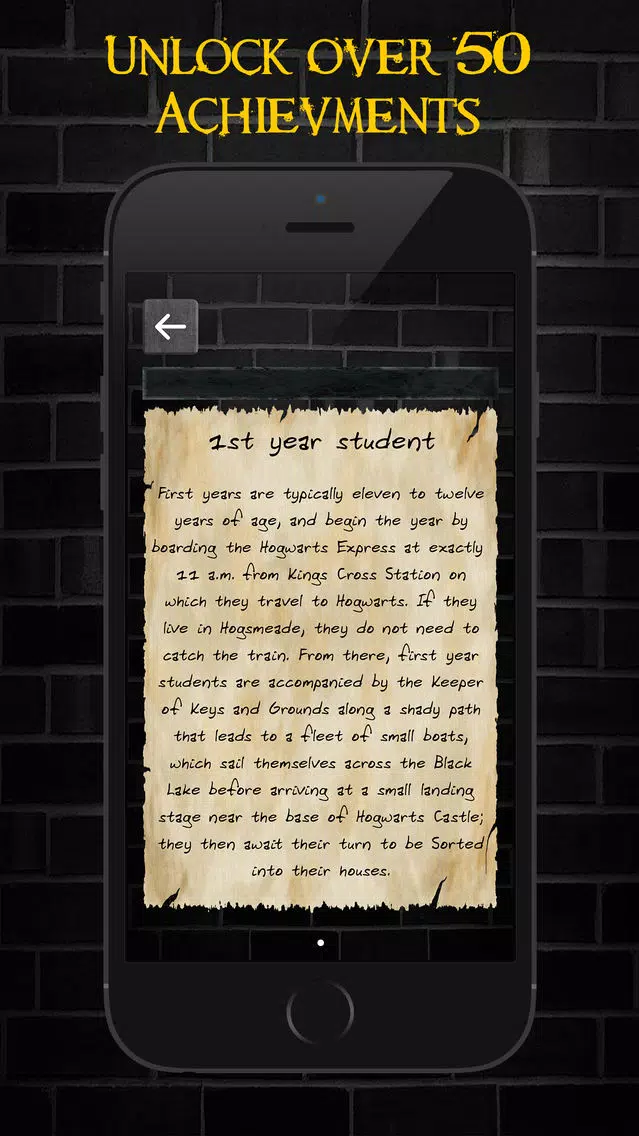 UNLOCK OVER 50
ACHIEVMENTS
1st year student
First years are typically eleven to twelve
years of age, and begin the year by
boarding the Hogwarts Express at exactly
11 a.m. from Kings Cross Station on
which they travel to Hogwarts. If they
live in Hogsmeade, they do not need to
catch the train. From there, first year
students are accompanied by the Keeper
of Keys and Grounds along a shady path
that leads to a fleet of small boats,
which sail themselves across the Black
Lake before arriving at a small landing
stage near the base of Hogwarts Castle;
they then await their turn to be Sorted
into their houses.